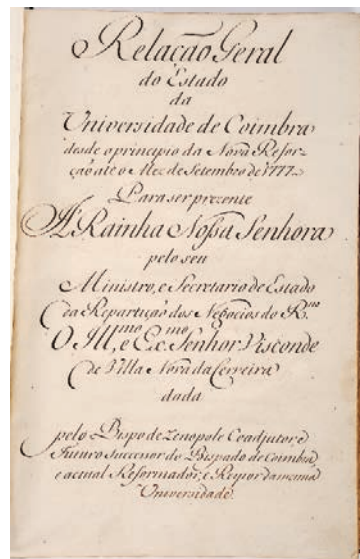 Relação Geral
do Estado
da
Universidade de Coimbra
desde o principio da Nova Refor-
ção até o Mez de Setembro de 1777.
Para ser prezente
A' Rainha Nossa Senhora
pelo seu
Ministro, e Secretario de Estado
da Repartição dos Negocios do R.no
O Ill.mo, e Ex.mo Senhor Visconde
de Villa Nova da Cerveira
dada
pelo Bispo de Zenopole Coadjutor e
Futuro Successor do Bispado de Coimbra,
e actual Reformador, e Reytor da mesma
Universidade.